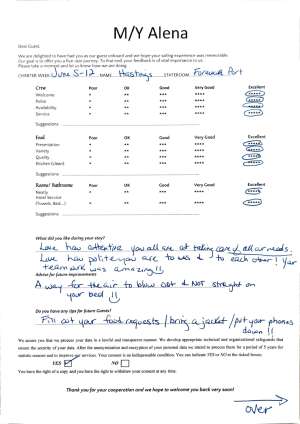 M/Y Alena
Dear Guest,
We are delighted to have had you as our guest onboard and we hope your sailing experience was memorable.
Our goal is to offer you a first rate experience. To that end, your feedback is of vital importance to us.
Please take a moment and let us know how we are doing.
CHARTER WEEK June 5-12 NAME Hastings STATEROOM Forward Port
Crew Poor OK Good Very Good Excellent
Welcome * ** *** **** *****
Polite * ** *** **** *****
Availability * ** *** **** *****
Service * ** *** **** *****
Suggestions
Food Poor OK Good Very Good Excellent
Presentation * ** *** **** *****
Variety * ** *** **** *****
Quality * ** *** **** *****
Kitchen Island * ** *** **** *****
Suggestions
Rooms/ Bathrooms Poor OK Good Very Good Excellent
Neatly * ** *** **** *****
Hotel Service
(Towels, Bed...) * ** *** **** *****
Suggestions
What did you like during your story?
Love how attentive you all are at taking care of all our needs.
Love how polite you are to us & to each other! Your
teamwork was amazing!!
Advice for future improvements
A way for the air to blow out & NOT straight on
your bed!!
Do you have any tips for future Guests?
Fill out your food requests / bring a jacket / put your phones
down!!
We assure you that we process your data in a lawful and transparent manner. We develop appropriate technical and organizational safeguards that
ensure the security of your data. After the anonymization and encryption of your personal data we intend to process them for a period of 5 years for
statistic reasons and to improve our services. Your consent is an indispensable condition. You can indicate YES or NO in the related boxes.
YES NO
You have the right of a copy, and you have the right to withdraw your consent at any time.
Thank you for your cooperation and we hope to welcome you back very soon!
over